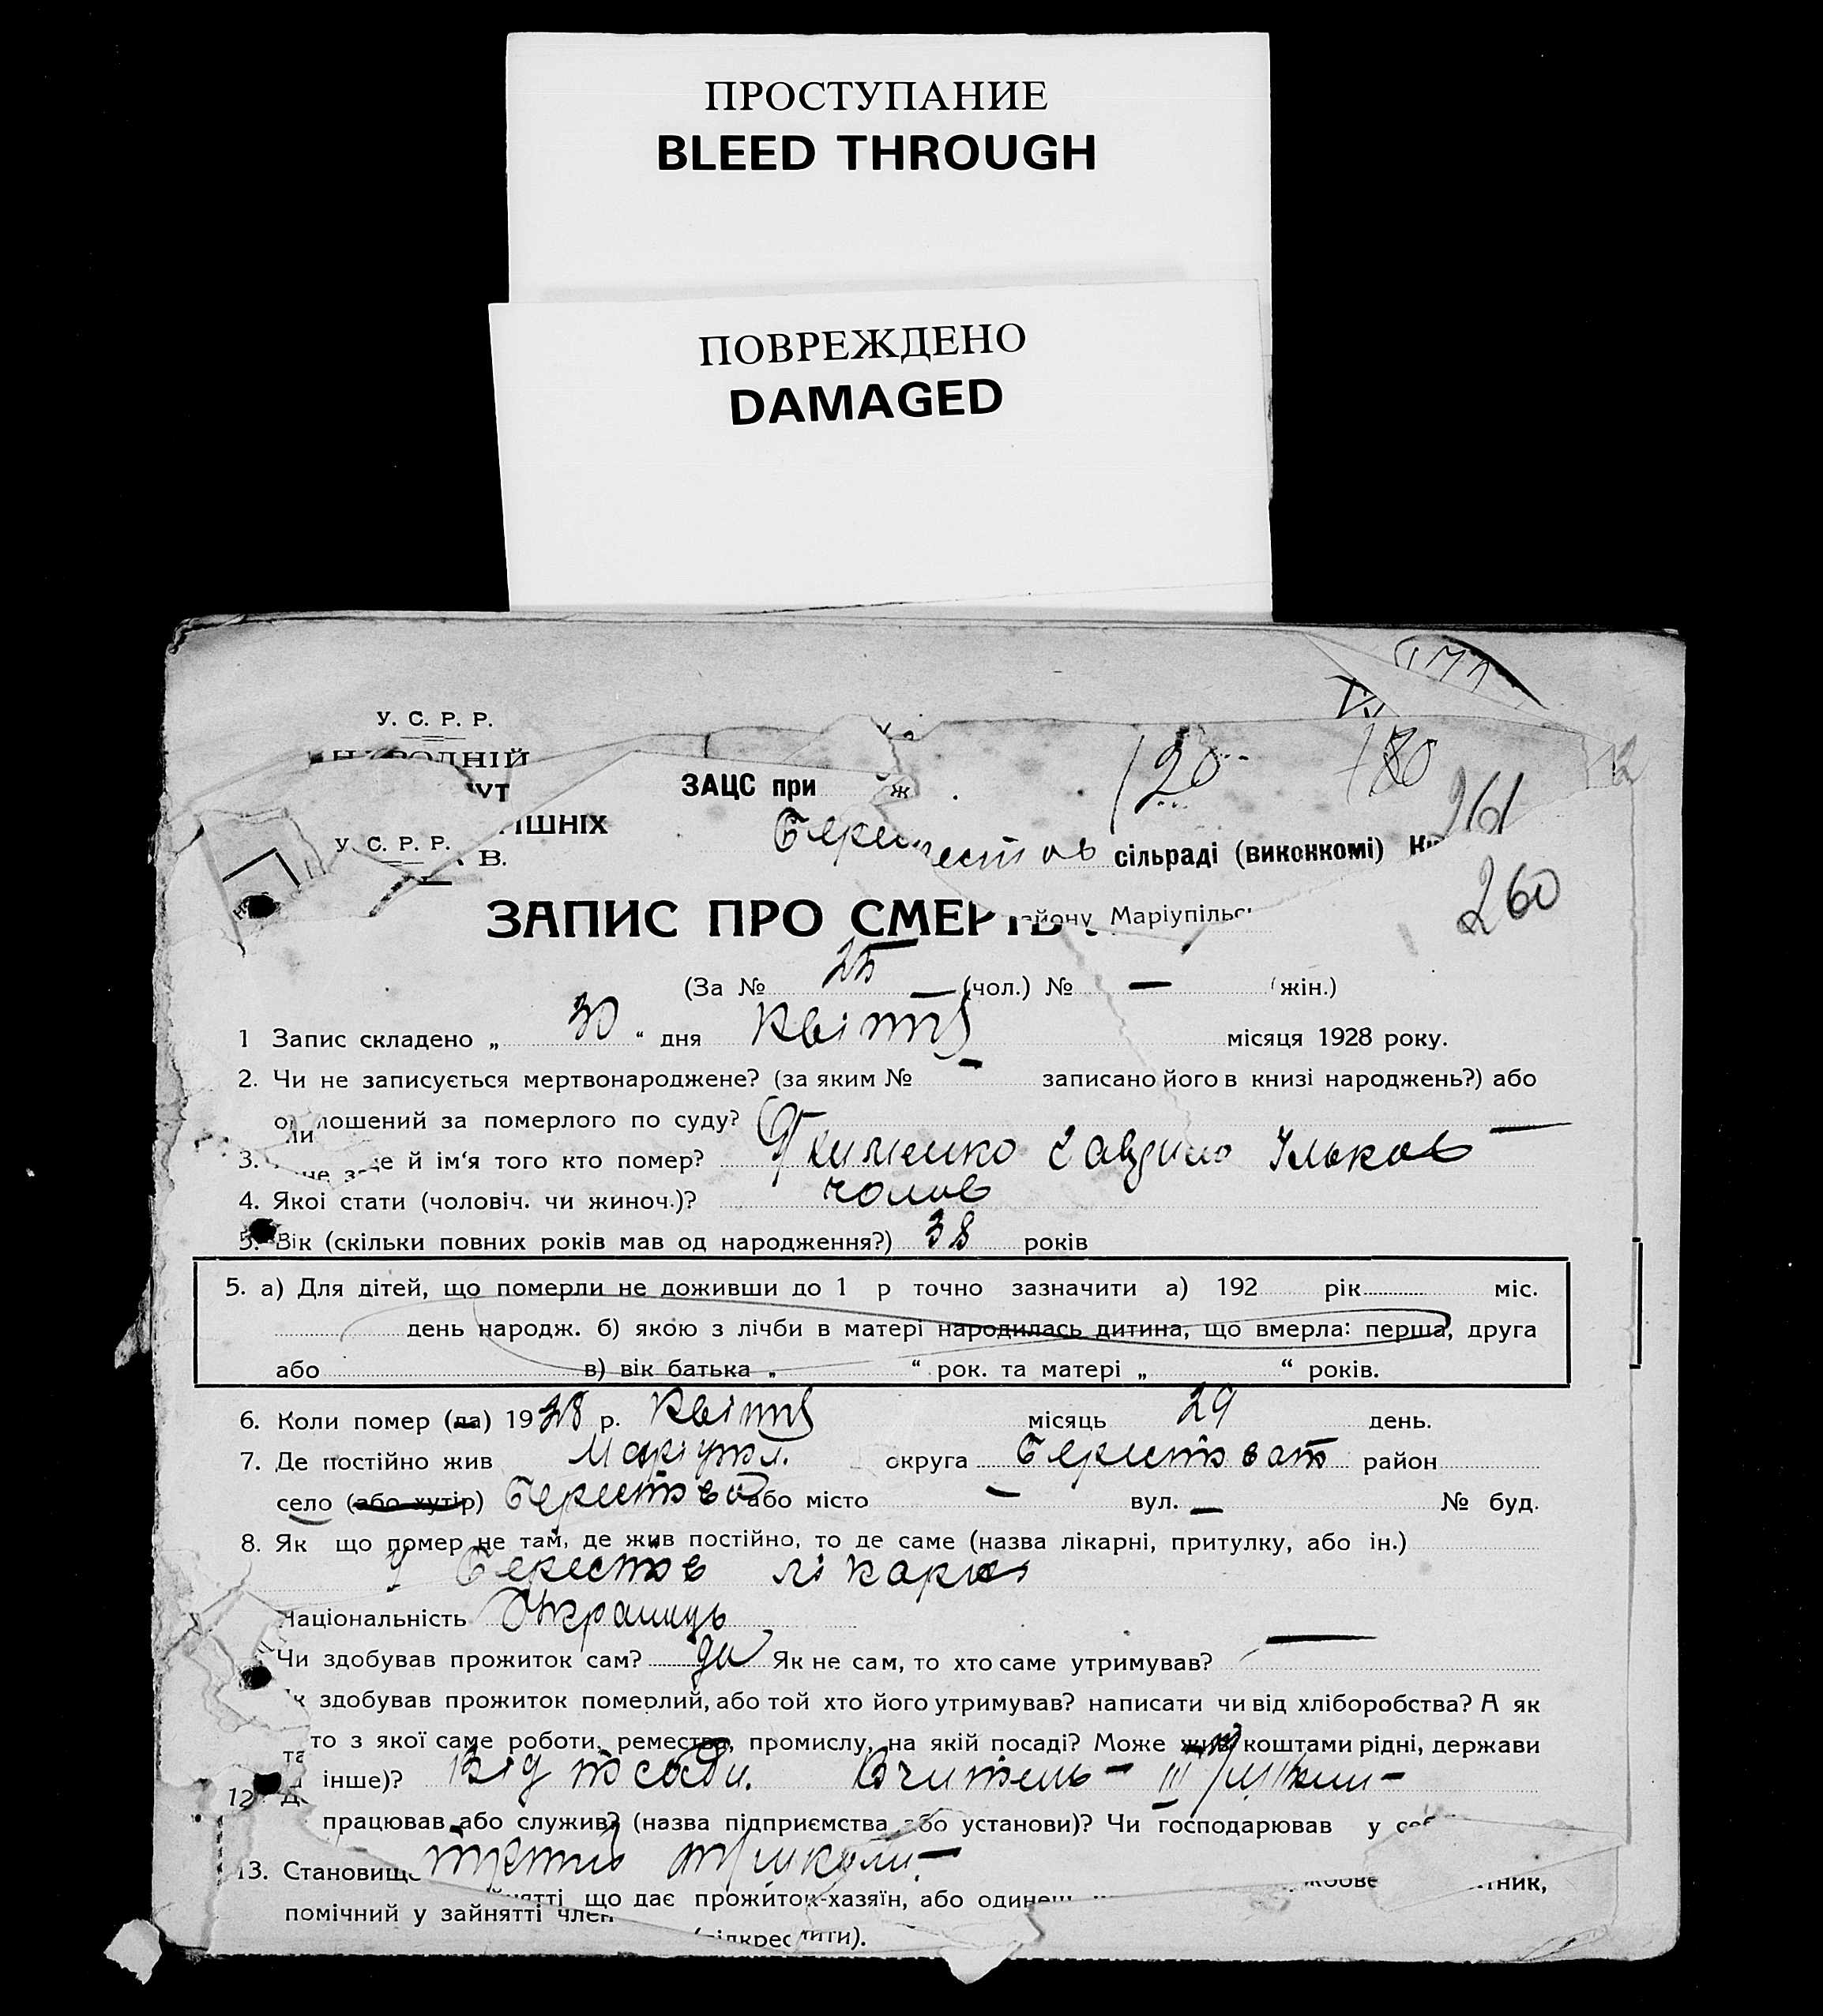 ПРОСТУПАНИЕ
BLEED THROUGH
ПОВРЕЖДЕНО
DAMAGED
У. С. Р. Р.
НАРОДНІЙ
ЗАЦС при
120
180
ІШНІХ
261
У. С. Р. Р.
В.
сільраді (виконкомі)
260
ЗАПИС ПРО СМЕРТЬ
айону Маріупільс
(За № 25 (чол.) № — (жін.)
1 Запис складено „ 30 “ дня Квітня місяця 1928 року.
2. Чи не записується мертвонароджене? (за яким № — записано його в книзі народжень?) або
лошений за померлого по суду? —
3. й ім‘я того кто помер? Ільков
4. Якої стати (чоловіч. чи жиноч.)? чолов
5. Вік (скільки повних років мав од народження?) 38 років
5. а) Для дітей, що померли не доживши до 1 р точно зазначити а) 192 рік міс.
день народж. б) якою з лічби в матері народилась дитина, що вмерла: перша, друга
або в) вік батька „ “ рок. та матері „ “ років.
6. Коли помер (ла) 1928 р. Квітня місяць 29 день.
7. Де постійно жив Маріупл. округа район
село (або хутір) або місто — вул. — № буд.
8. Як що помер не там, де жив постійно, то де саме (назва лікарні, притулку, або ін.)
У Берестов лікарні
Національність Украинць
Чи здобував прожиток сам? да Як не сам, то хто саме утримував? —
к здобував прожиток померлий, або той хто його утримував? написати чи від хліборобства? А як
то з якої саме роботи, ремества, промислу, на якій посаді? Може жив коштами рідні, держави
інше)? Від посади. Вчитель —
12
працював або служив? (назва підприємства або установи)? Чи господарював у
13. Становище
що дає прожиток-хазяїн, або одинец
тник,
помічний у зайнятті член